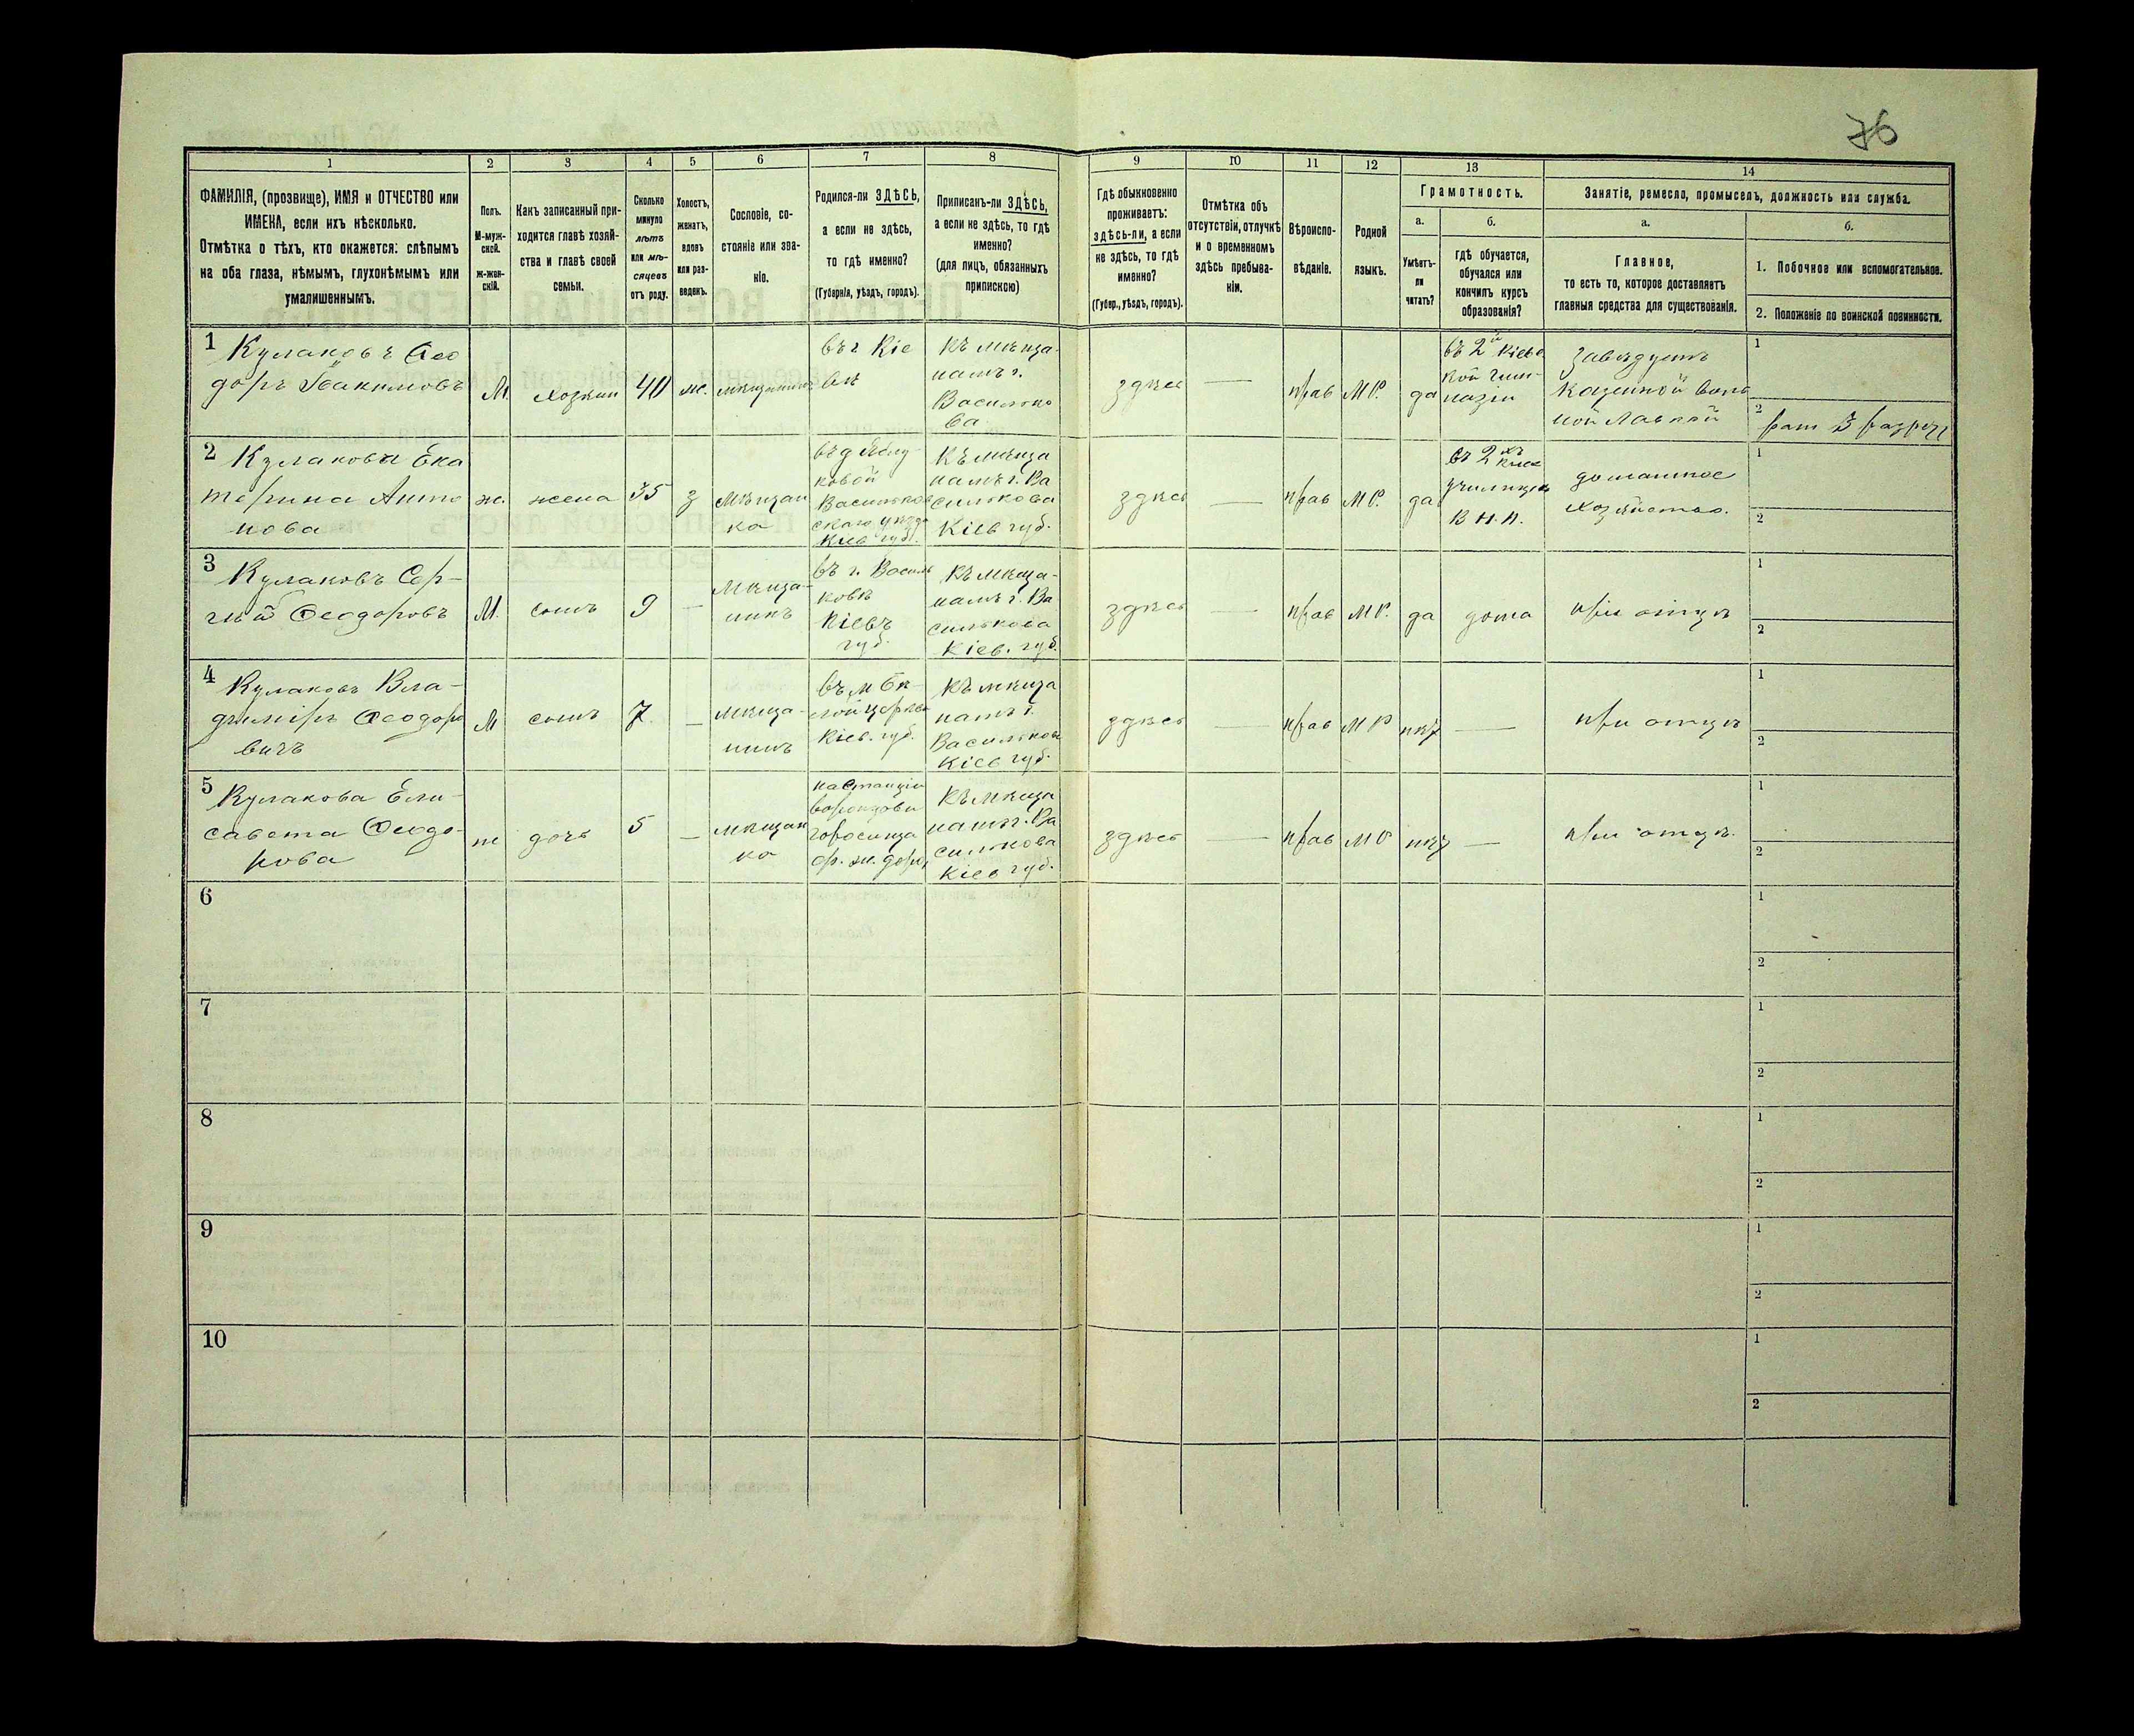 76
1 2 3 4 5 6 7 8 9 10 11 12 13 14
ФАМИЛІЯ, (прозвище), ИМЯ и ОТЧЕСТВО или
ИМЕНА, если ихъ нѣсколько.
Отмѣтка о тѣхъ, кто окажется: слѣпымъ
на оба глаза, нѣмымъ, глухонѣмымъ или
умалишеннымъ.
Полъ.
М-муж-
ской.
ж-жен-
скій.
Какъ записанный при-
ходится главѣ хозяй-
ства и главѣ своей
семьи.
Сколько
минуло
лѣтъ
или мѣ-
сяцевъ
отъ роду.
Холостъ,
женатъ,
вдовъ
или раз-
веденъ.
Сословіе, со-
стояніе или зва-
ніе.
Родился-ли ЗДѢСЬ,
а если не здѣсь,
то гдѣ именно?
(Губернія, уѣздъ, городъ).
Приписанъ-ли ЗДѢСЬ,
а если не здѣсь, то гдѣ
именно?
(для лицъ, обязанныхъ
припискою)
Гдѣ обыкновенно
проживаетъ:
здѣсь-ли, а если
не здѣсь, то гдѣ
именно?
(Губер., уѣздъ, городъ).
Отмѣтка объ
отсутствіи, отлучкѣ
и о временномъ
здѣсь пребыва-
ніи.
Вѣроиспо-
вѣданіе.
Родной
языкъ.
Грамотность.
а.
Умѣетъ-
ли
читать?
б.
гдѣ обучается,
обучался или
кончилъ курсъ
образованія?
Занятіе, ремесло, промыселъ, должность или служба.
а.
Главное,
то есть то, которое доставляетъ
главныя средства для существованія.
б.
1. Побочное или вспомогательное.
2. Положеніе по воинской повинности.
1
Кулаковъ Ѳео
доръ Іоакимовъ
М.
хозяин
40
ж.
мѣщанинъ
въ г Кіе
вѣ
къ мѣща-
намъ г.
Василько
ва
здѣсь
—
прав
М Р.
да
въ 2й Кіевс
кой гим-
назіи
завѣдуетъ
казенной вин
ной лавкой
1
2 рат 3 разряд
2
Кулакова Ека
терина Анто
нова
ж.
жена
35
з
мѣщан
ка
Васильков
скаго уѣзда
Кіев губ.
къ мѣща
намъ г. Ва
силькова
Кіев губ.
здѣсь
—
прав
М Р.
да
училище
В Н. П.
домашнее
хозяйство.
1
2
3
Кулаковъ Сер-
гѣй Ѳеодоровъ
М.
сынъ
9
—
мѣща-
нинъ
въ г. Василь
ковѣ
Кіевъ
губ.
къ мѣща-
намъ г. Ва
силькова
Кіев. губ.
здѣсь
—
прав
М Р.
да
дома
при отцѣ
1
2
4
Кулаковъ Вла-
диміръ Ѳеодоро
вичъ
М
сынъ
7.
—
мѣща-
нинъ
въ м Бѣ-
лой церкви
Кіев. губ.
къ мѣща
намъ г.
Василькова
Кіев губ.
здѣсь
—
прав
М Р
нѣт
—
при отцѣ
1
2
5
Кулакова Ели-
савета Ѳеодо-
рова
ж
дочь
5
—
мѣщан
ка
на станціи
Воронцова
Городища
ф. ж. дорог
къ мѣща
намъ г. Ва
силькова
Кіев губ.
здѣсь
—
прав
М Р
нѣт
—
при отцѣ.
1
2
6
1
2
7
1
2
8
1
2
9
1
2
10
1
2